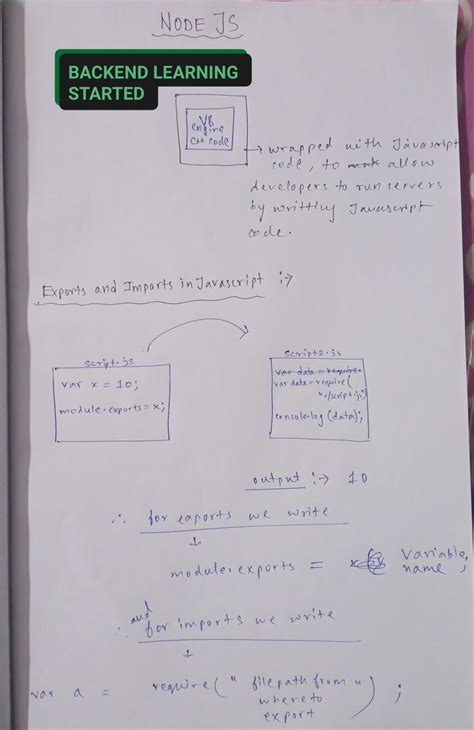 NODE JS
BACKEND LEARNING
STARTED
V8
engine
C++ code
wrapped with Javascript
code, to allow
developers to run servers
by writting Javascript
code.
Exports and Imports in Javascript :→
script.js
var x = 10;
module.exports = x;
script2.js
var data = require
var data = require(
"./script.js")
console.log(data);
output :→ 10
∴ for exports we write
↓
module.exports = Variable
name;
and
∴ for imports we write
↓
var a = require(" filepath from "
where to
export ) ;